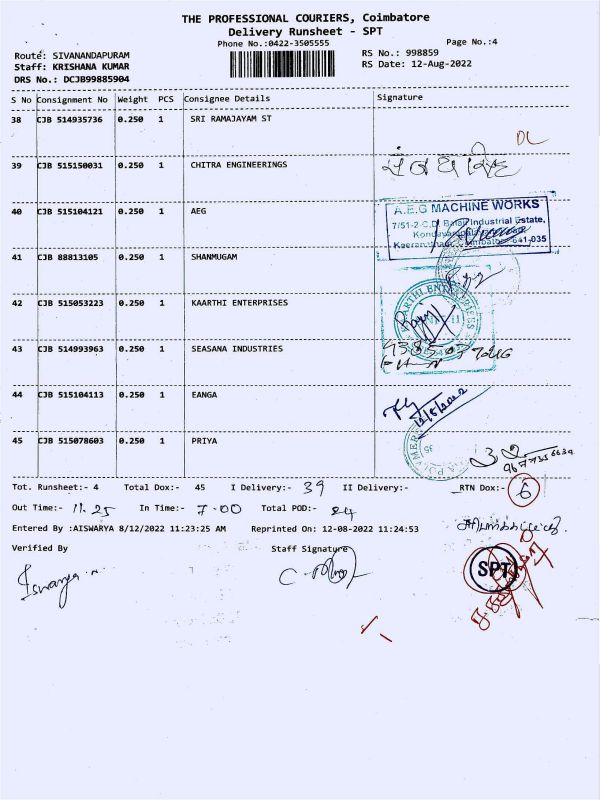 THE PROFESSIONAL COURIERS, Coimbatore
Delivery Runsheet - SPT
Phone No.:0422-3505555
Page No.:4
Route: SIVANANDAPURAM
RS No.: 998859
Staff: KRISHANA KUMAR
RS Date: 12-Aug-2022
DRS No.: DCJB99885904
S No Consignment No Weight PCS Consignee Details Signature
38 CJB 514935736 0.250 1 SRI RAMAJAYAM ST
DL
39 CJB 515150031 0.250 1 CHITRA ENGINEERINGS
40 CJB 515104121 0.250 1 AEG
A.E.G MACHINE WORKS
7/51-2 Industrial Estate,
641-035
41 CJB 88813105 0.250 1 SHANMUGAM
42 CJB 515053223 0.250 1 KAARTHI ENTERPRISES
43 CJB 514993963 0.250 1 SEASANA INDUSTRIES
44 CJB 515104113 0.250 1 EANGA
45 CJB 515078603 0.250 1 PRIYA
Tot. Runsheet:- 4 Total Dox:- 45 I Delivery:- 39 II Delivery:- RTN Dox:- 6
Out Time:- 11.25 In Time:- 7-00 Total POD:-
Entered By :AISWARYA 8/12/2022 11:23:25 AM Reprinted On: 12-08-2022 11:24:53
Verified By Staff Signature
SPT